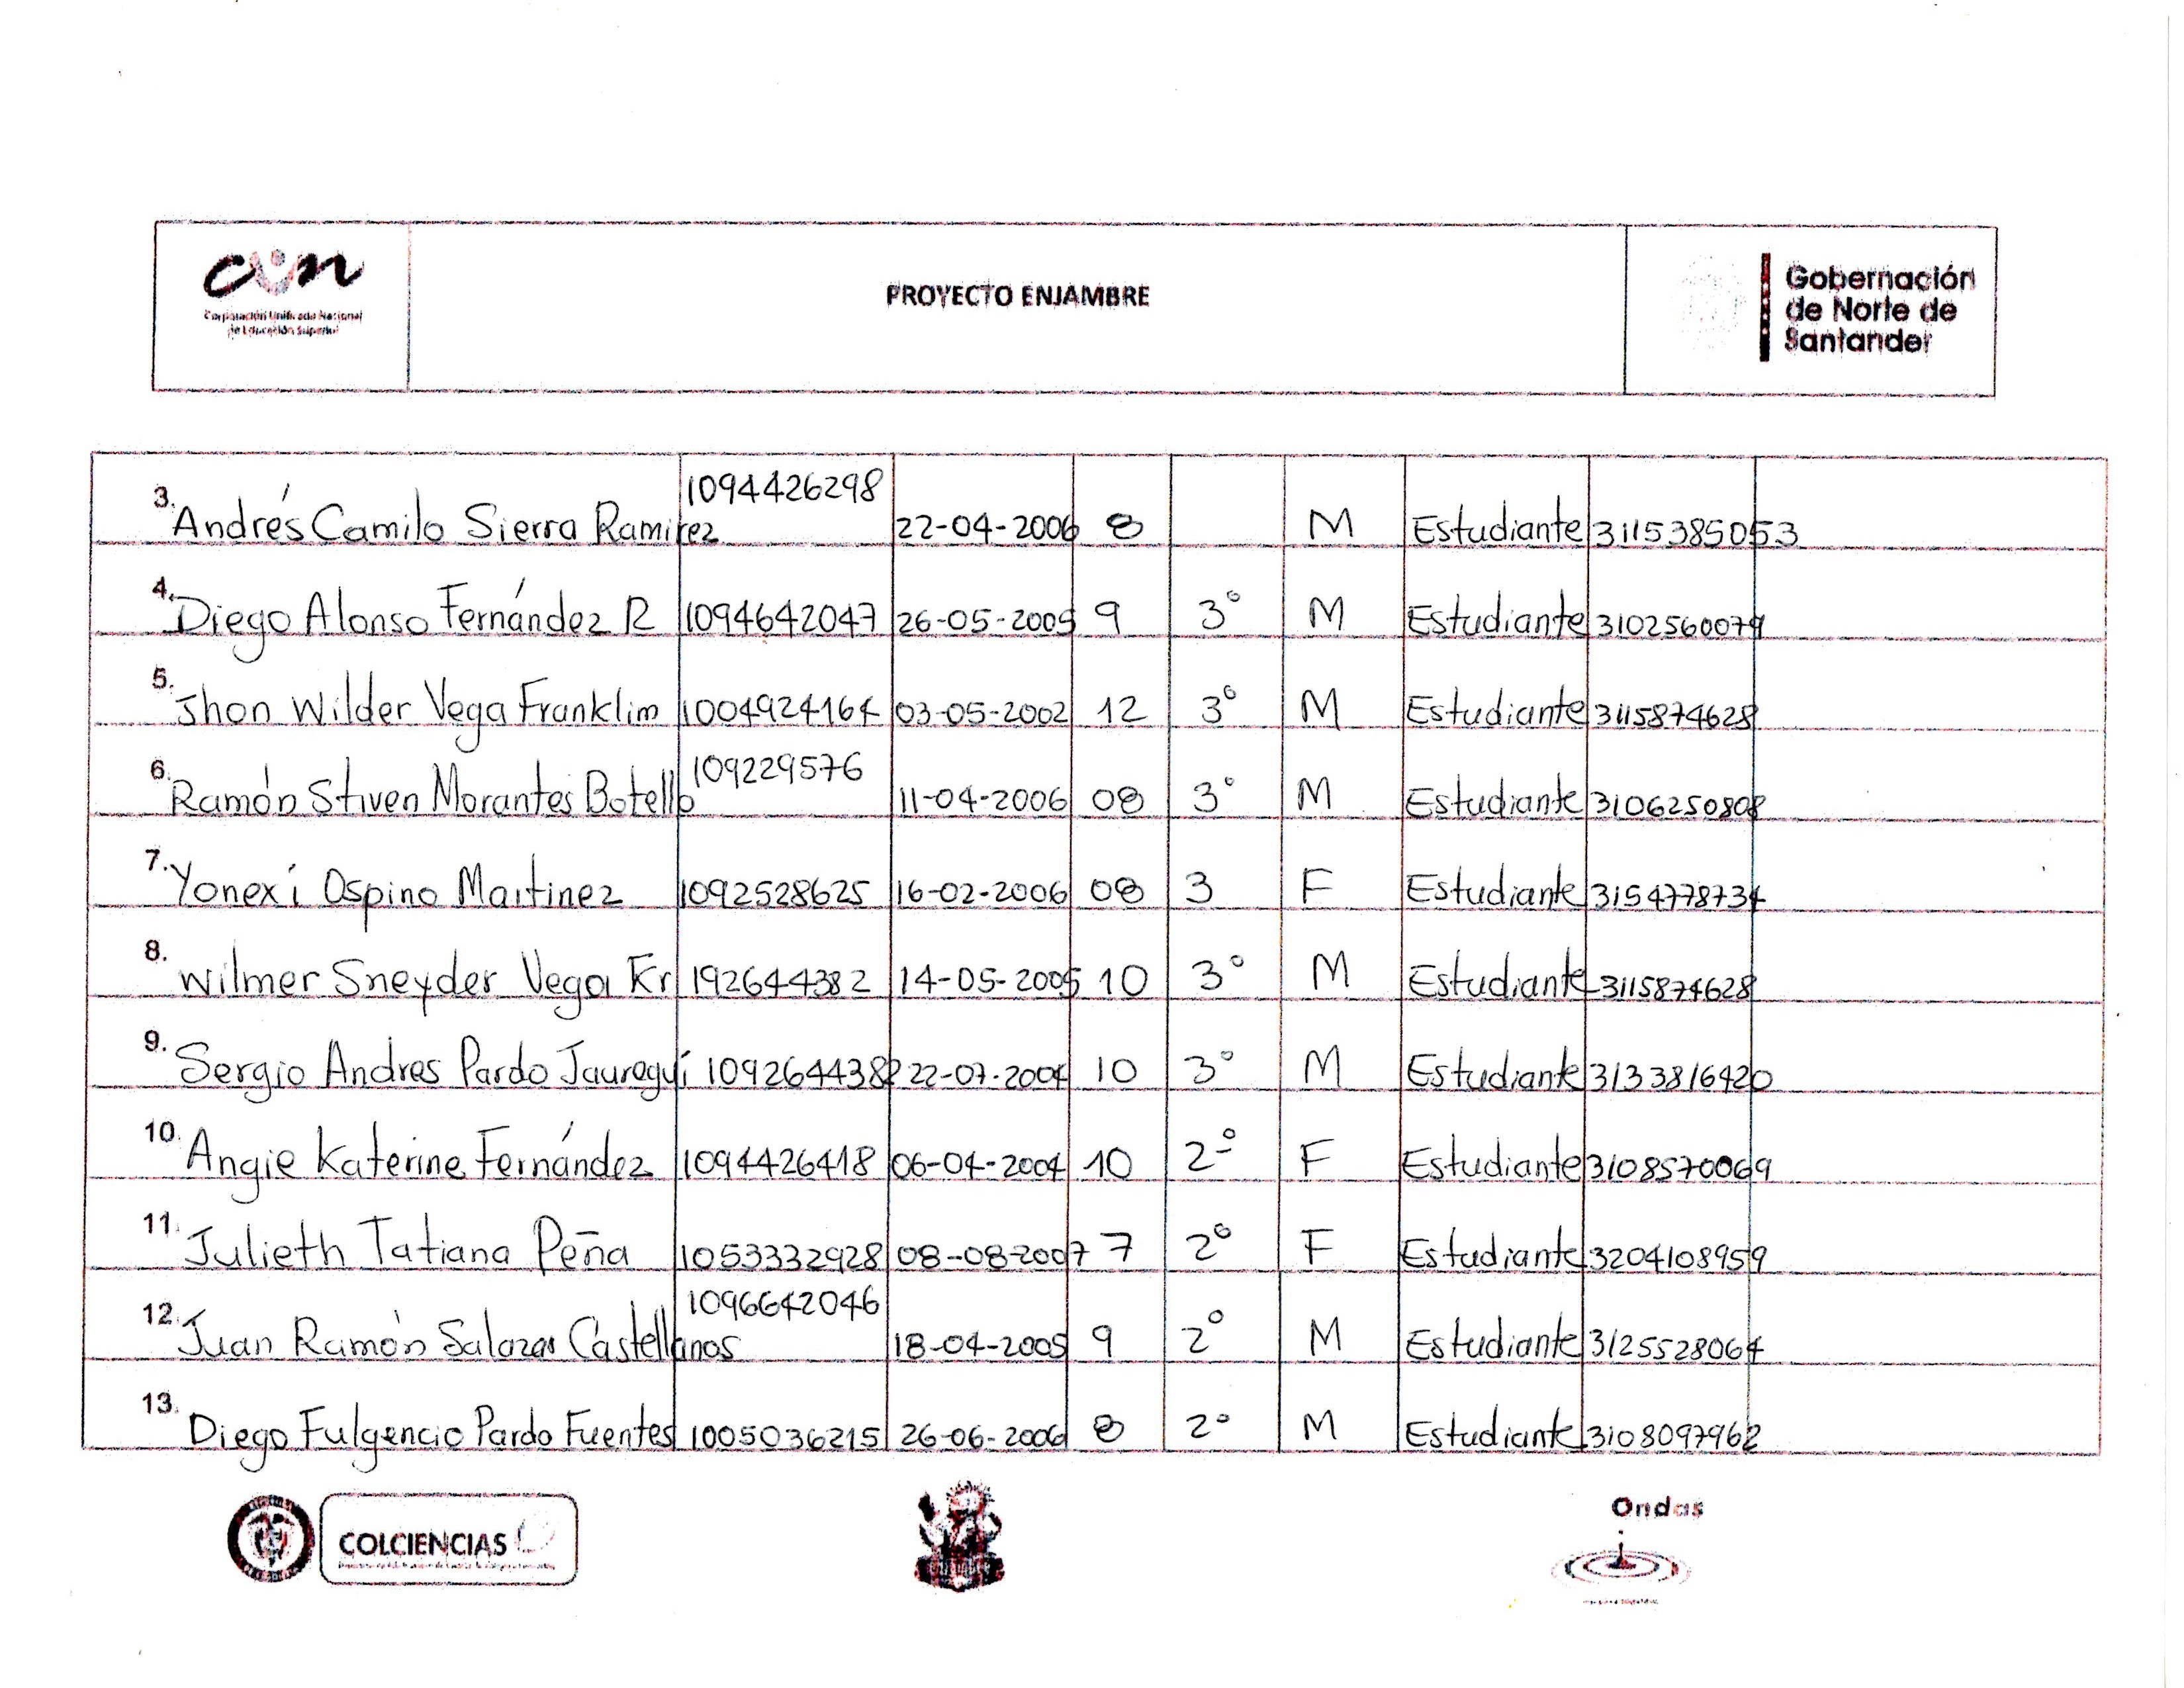 cun
Corporación Unificada Nacional
de Educación Superior
PROYECTO ENJAMBRE
Gobernación
de Norte de
Santander
3. Andrés Camilo Sierra Ramirez 1094426298 22-04-2006 8 M Estudiante 3115385053
4. Diego Alonso Fernández R 1094642047 26-05-2005 9 3° M Estudiante 3102560079
5. Jhon Wilder Vega Franklim 1004924164 03-05-2002 12 3° M Estudiante 3115874628
6. Ramón Stiven Morantes Botello 109229576 11-04-2006 08 3° M Estudiante 3106250808
7. Yonexi Ospino Martinez 1092528625 16-02-2006 08 3 F Estudiante 3154778734
8. Wilmer Sneyder Vega Fr 192644382 14-05-2005 10 3° M Estudiante 3115874628
9. Sergio Andres Pardo Jauregui 1092644382 22-07-2004 10 3° M Estudiante 3133816420
10. Angie Katerine Fernández 1094426418 06-04-2004 10 2° F Estudiante 3108570069
11. Julieth Tatiana Peña 1053332928 08-08-2007 7 2° F Estudiante 3204108959
12. Juan Ramón Salazar Castellanos 1096642046 18-04-2005 9 2° M Estudiante 3125528064
13. Diego Fulgencio Pardo Fuentes 1005036215 26-06-2006 8 2° M Estudiante 3108097962
COLCIENCIAS
Ondas